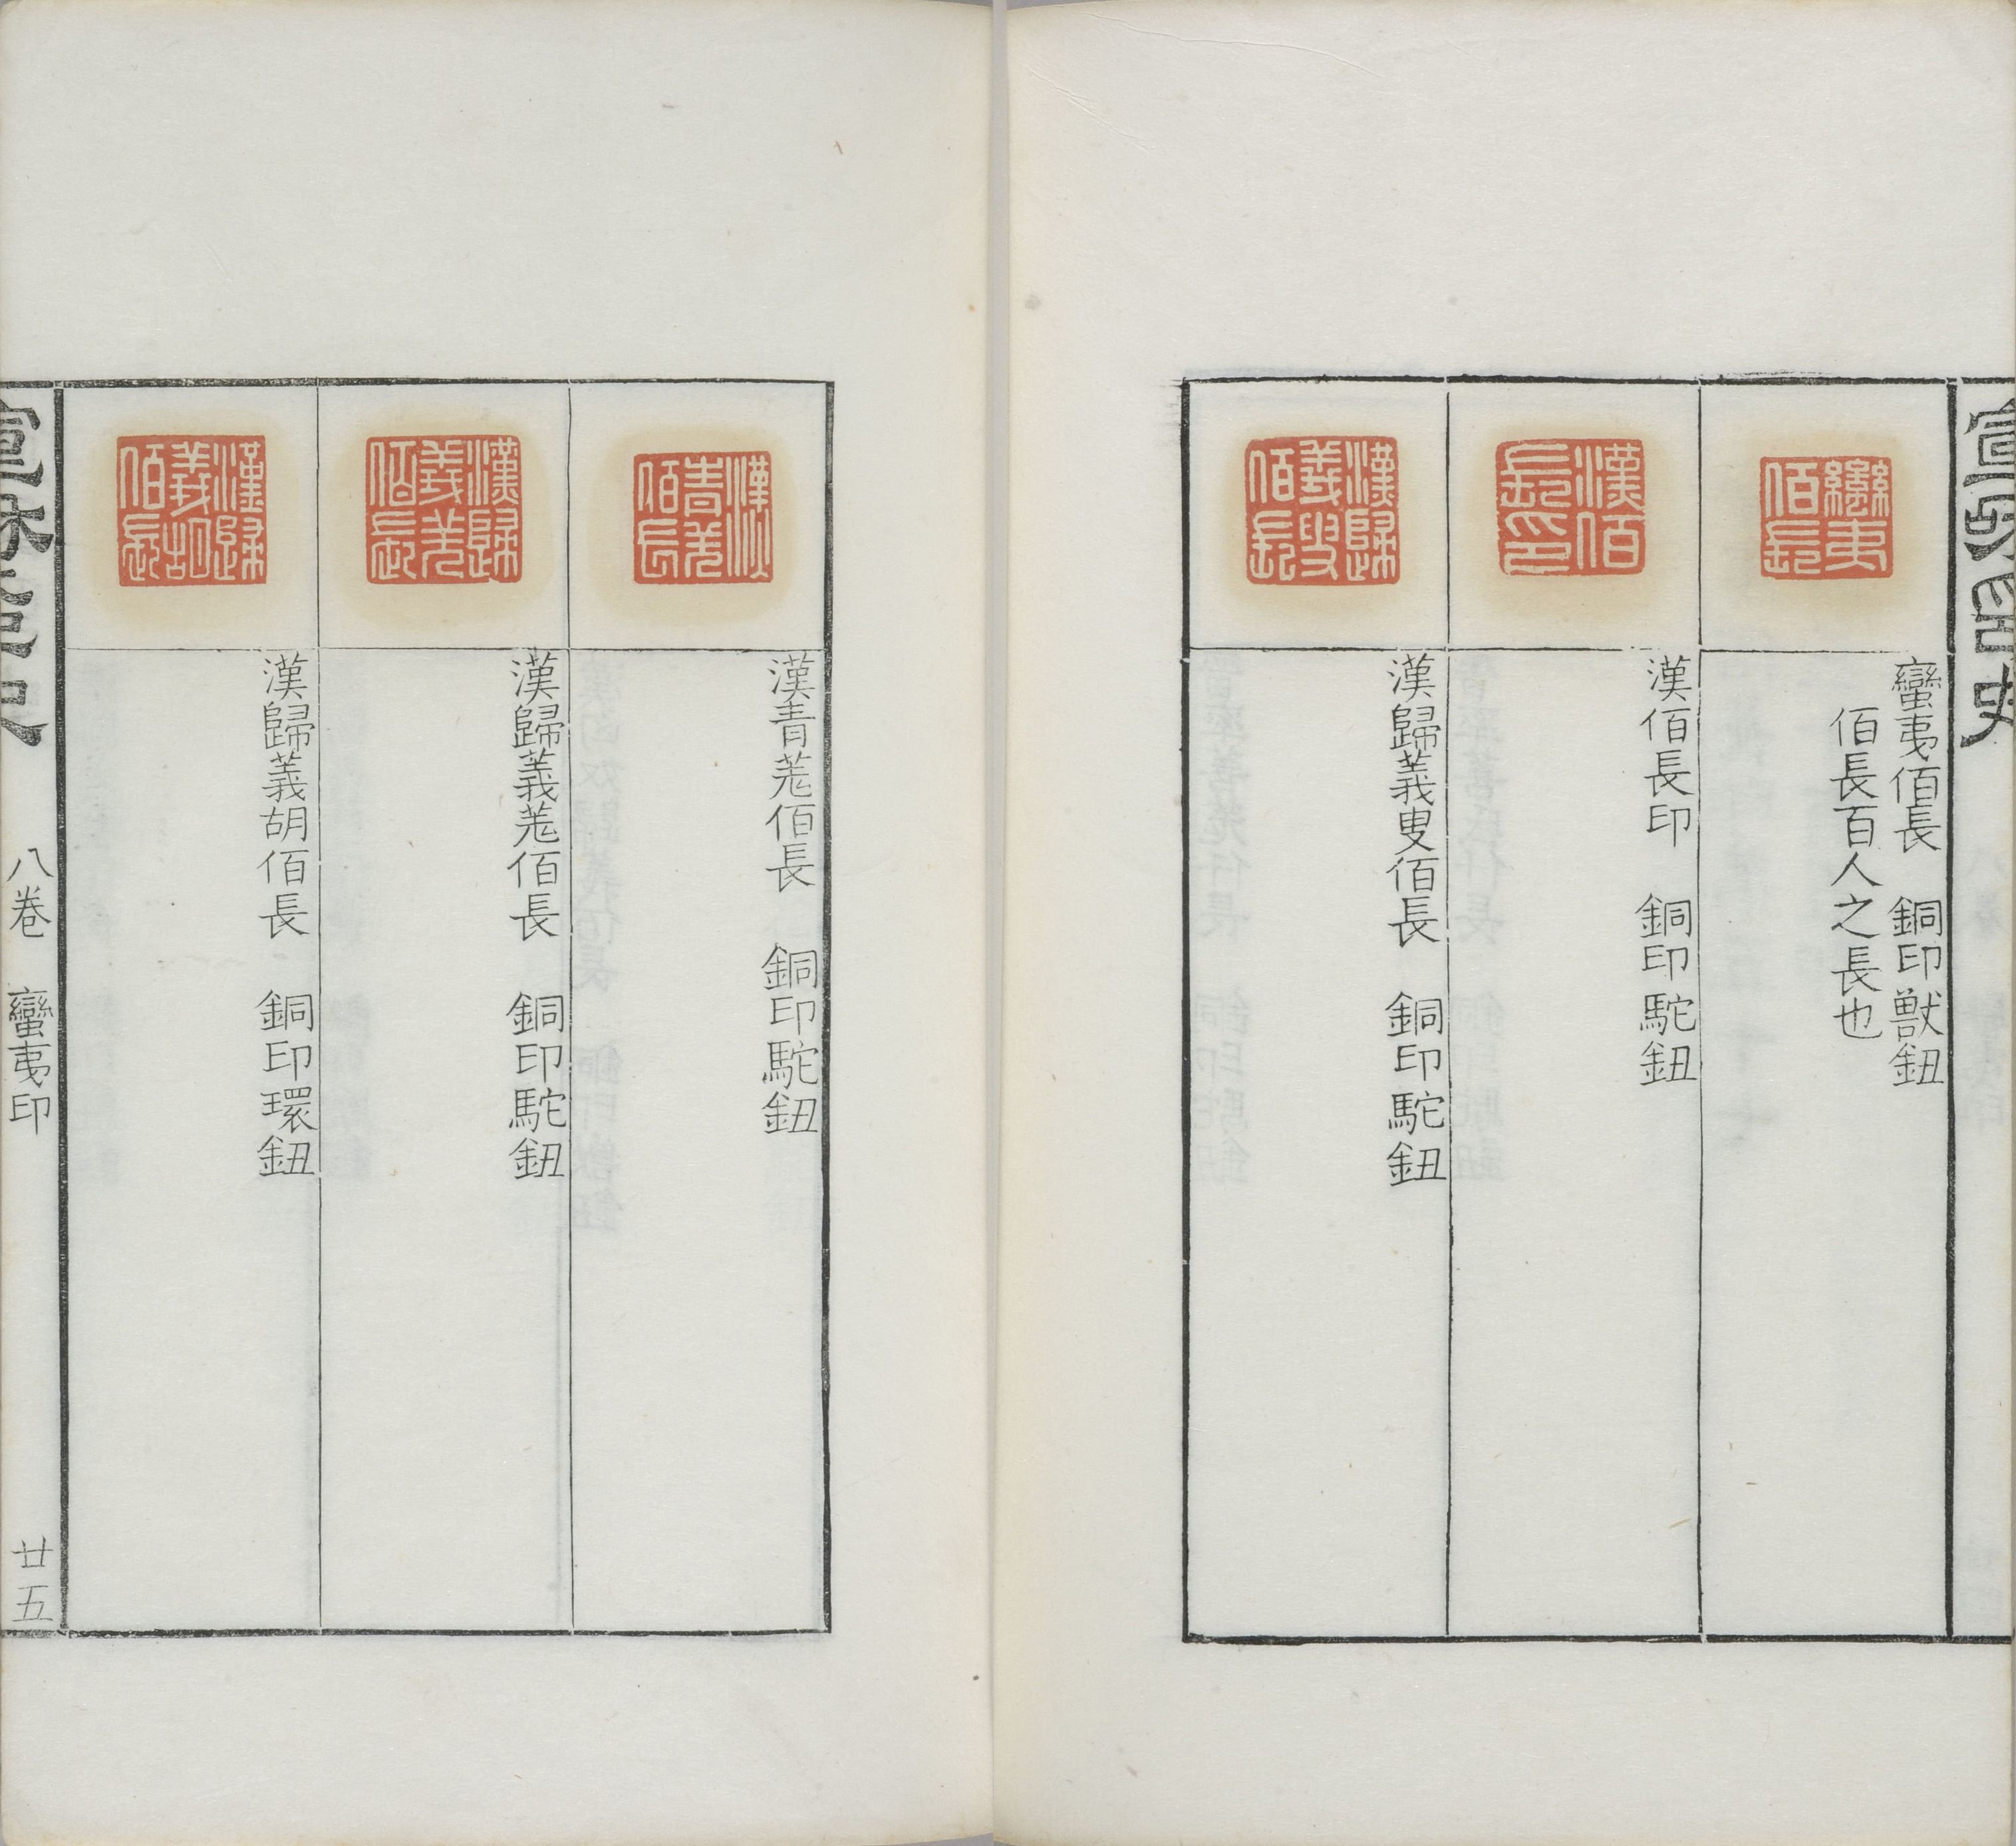 宣和印史
蠻夷佰長
蠻夷佰長　銅印獸鈕
佰長百人之長也
漢佰長印
漢佰長印　銅印駝鈕
漢歸義叟佰長
漢歸義叟佰長　銅印駝鈕
漢青羌佰長
漢青羌佰長　銅印駝鈕
漢歸義羌佰長
漢歸義羌佰長　銅印駝鈕
漢歸義胡佰長
漢歸義胡佰長　銅印環鈕
八卷　蠻夷印　廿五